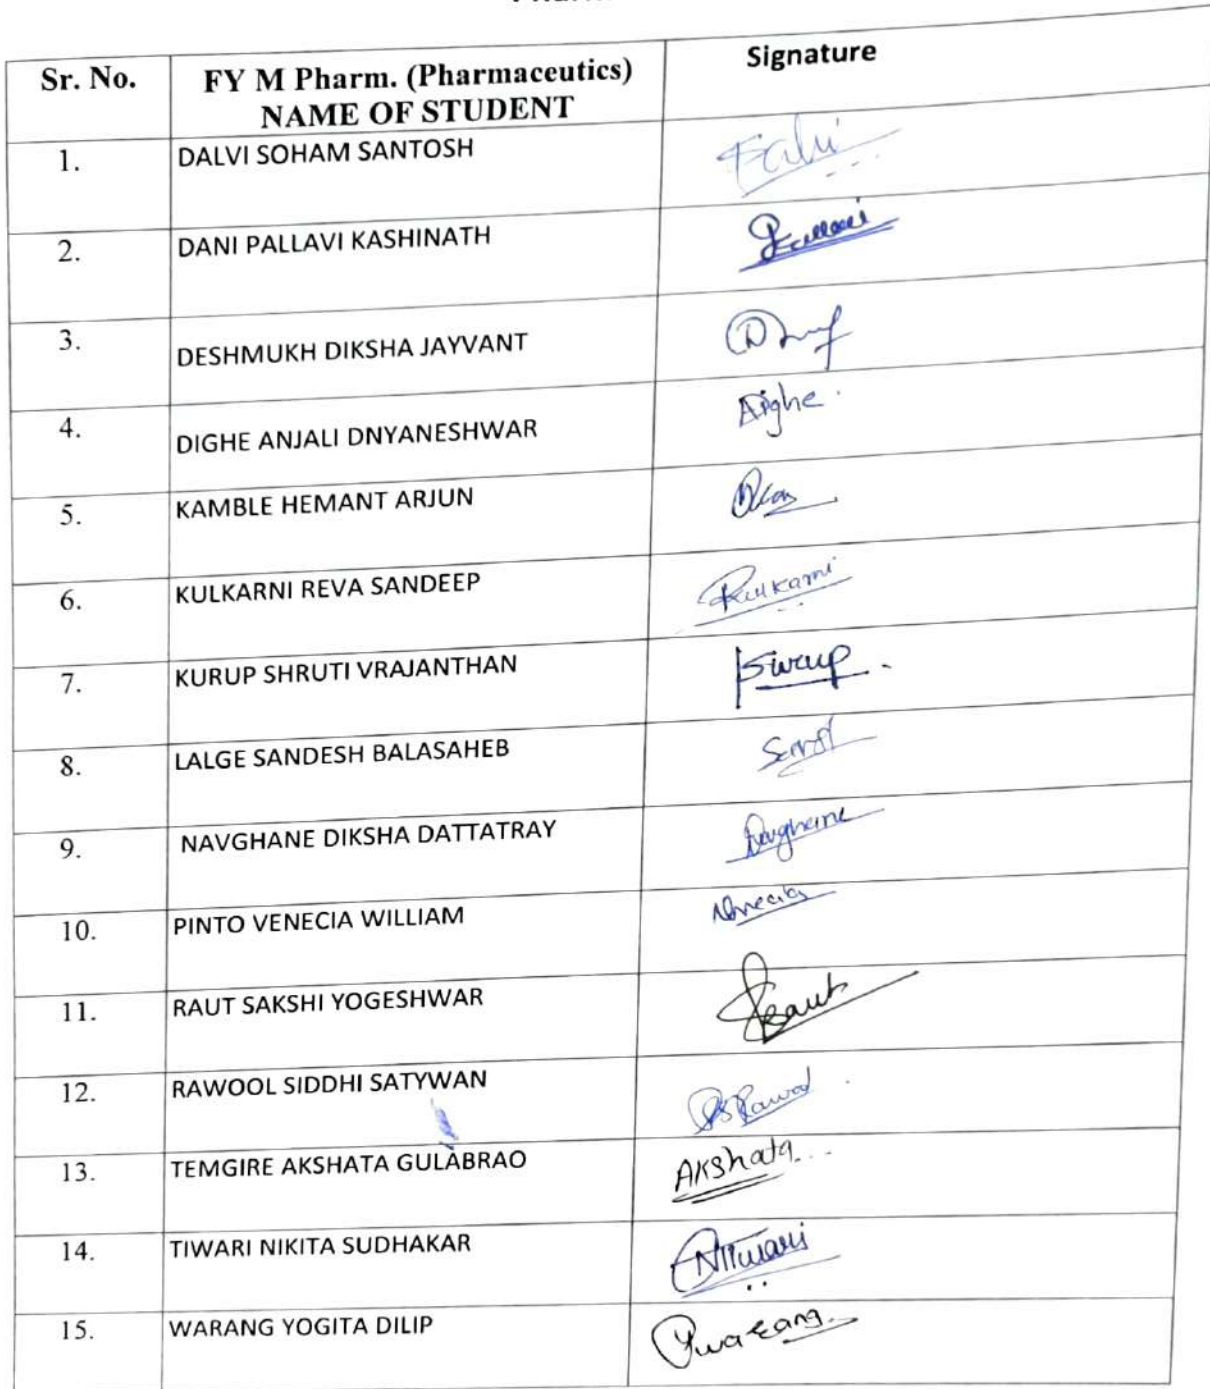 Sr. No. FY M Pharm. (Pharmaceutics) Signature
NAME OF STUDENT
1. DALVI SOHAM SANTOSH
2. DANI PALLAVI KASHINATH Pallavi
3. DESHMUKH DIKSHA JAYVANT
4. DIGHE ANJALI DNYANESHWAR Dighe
5. KAMBLE HEMANT ARJUN
6. KULKARNI REVA SANDEEP Kulkarni
7. KURUP SHRUTI VRAJANTHAN
8. LALGE SANDESH BALASAHEB
9. NAVGHANE DIKSHA DATTATRAY Navghane
10. PINTO VENECIA WILLIAM
11. RAUT SAKSHI YOGESHWAR
12. RAWOOL SIDDHI SATYWAN
13. TEMGIRE AKSHATA GULABRAO Akshata
14. TIWARI NIKITA SUDHAKAR NTiwari
15. WARANG YOGITA DILIP Ywarang